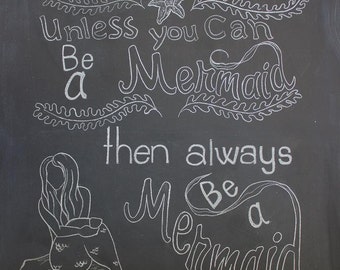 Unless you Can
Be
a Mermaid
then always
Be a
Mermaid